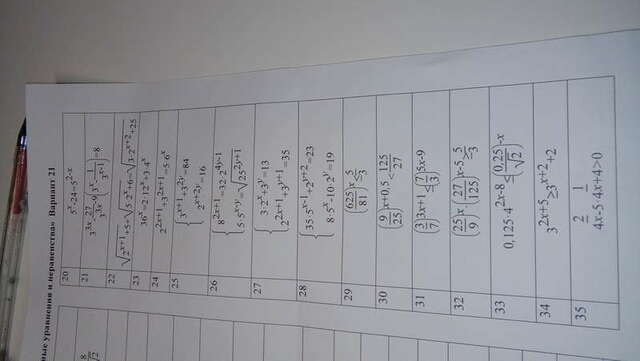 ные уравнения и неравенства» Вариант 21
8
√2
20
5^x-24=5^(2-x)
21
3^(3x)-27/3^(3x)-9(3^x-1/3^(x-1))=8
22
√(2^(x+1)+5)+√(5·2^x+6)=√(3·2^(x+2)+25)
23
36^x=2·12^x+3·4^x
24
2^(2x+1)+3^(2x+1)=5·6^x
25
{3^(x+1)+3^(2y)=84
2^(x+2y)=16
26
{8^(2x+1)=32·2^(4y-1)
5·5^(x-y)=√(25^(2y+1))
27
{3·2^x+3^y=13
2^(2x+1)+3^(y+1)=35
28
{35·5^(x-1)+2^(y+2)=23
8·5^x-10·2^y=19
29
(625/81)^x≤5/3
30
(9/25)^(x+0,5)<125/27
31
(3/7)^(3x+1)≤(7/3)^(5x-9)
32
(25/9)^x·(27/125)^(x-5)≥5/3
33
0,125·4^(2x-8)≤(0,25/√2)^(-x)
34
3^(2x+5)≥3^(x+2)+2
35
2 1
4x-5·4x+4>0